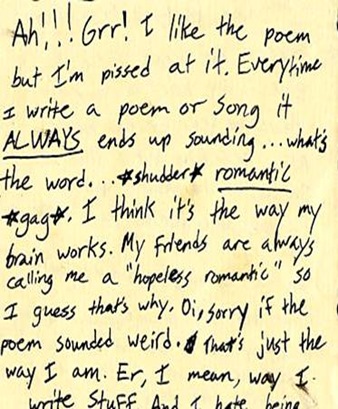 Ah!!! Grr! I like the poem
but I'm pissed at it. Everytime
I write a poem or song it
ALWAYS ends up sounding...what's
the word...*shudder* romantic
*gag*. I think it's the way my
brain works. My friends are always
calling me a "hopeless romantic" so
I guess that's why. Oi, sorry if the
poem sounded weird. That's just the
way I am. Er, I mean, way I
write stuff. And I hate being